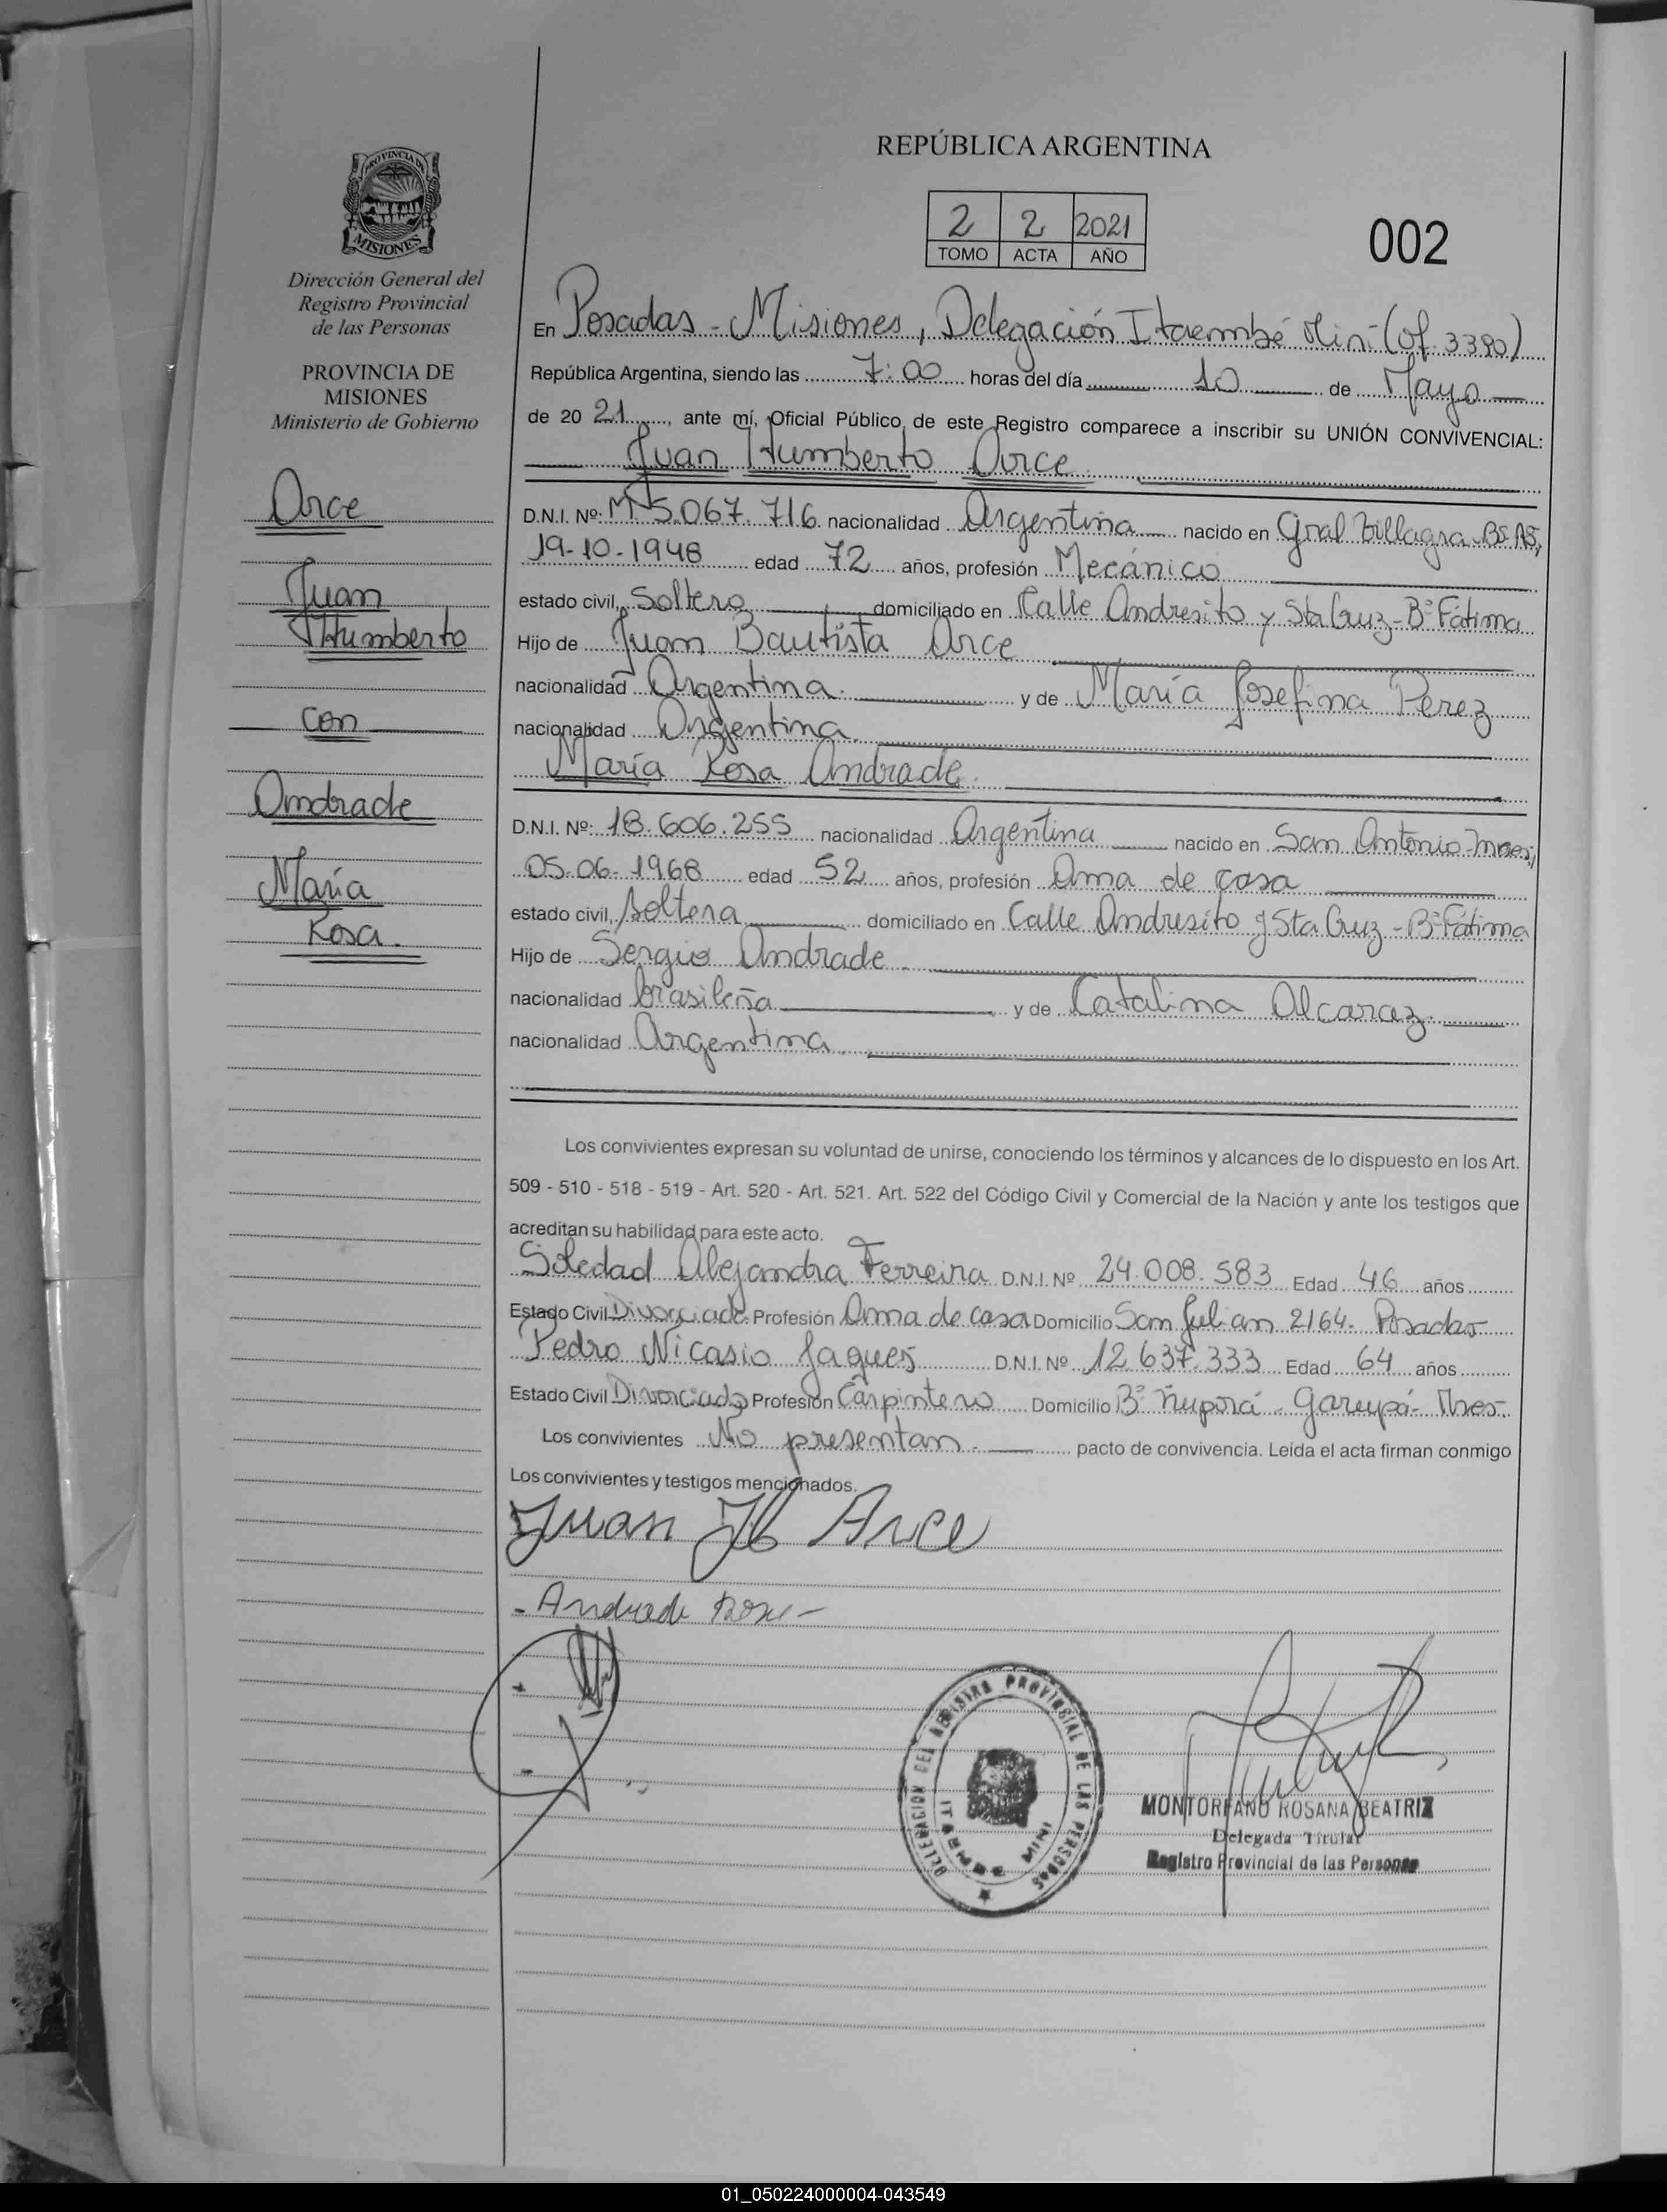 REPÚBLICA ARGENTINA
2 2 2021
TOMO ACTA AÑO
002
PROVINCIA DE
MISIONES
Dirección General del
Registro Provincial
de las Personas
PROVINCIA DE
MISIONES
Ministerio de Gobierno
Arce
Juan
Humberto
con
Andrade
María
Rosa.
En Posadas - Misiones, Delegación Itaembé Miní (of. 3380)
República Argentina, siendo las 7:00 horas del día 10 de Mayo
de 20 21, ante mí, Oficial Público de este Registro comparece a inscribir su UNIÓN CONVIVENCIAL:
Juan Humberto Arce
D.N.I. Nº: M 5.067.716. nacionalidad Argentina nacido en Gral Villagra - Bs As,
19-10-1948 edad 72 años, profesión Mecánico
estado civil, Soltero domiciliado en Calle Andresito y Sta Cruz - Bº Fátima
Hijo de Juan Bautista Arce
nacionalidad Argentina. y de María Josefina Perez
nacionalidad Argentina.
María Rosa Andrade.
D.N.I. Nº: 18.606.255 nacionalidad Argentina nacido en San Antonio - Mnes,
05-06-1968 edad 52 años, profesión Ama de casa
estado civil, soltera domiciliado en Calle Andresito y Sta Cruz - Bº Fátima
Hijo de Sergio Andrade.
nacionalidad brasileña y de Catalina Alcaraz.
nacionalidad Argentina.
Los convivientes expresan su voluntad de unirse, conociendo los términos y alcances de lo dispuesto en los Art.
509 - 510 - 518 - 519 - Art. 520 - Art. 521. Art. 522 del Código Civil y Comercial de la Nación y ante los testigos que
acreditan su habilidad para este acto.
Soledad Alejandra Ferreira D.N.I. Nº 24.008.583 Edad 46 años
Estado Civil Divorciada Profesión Ama de casa Domicilio San Julian 2164. Posadas
Pedro Nicasio Jaques D.N.I. Nº 12.637.333 Edad 64 años
Estado Civil Divorciado Profesión Carpintero Domicilio Bº Ñuporá - Garupá - Mnes.
Los convivientes No presentan. pacto de convivencia. Leída el acta firman conmigo
Los convivientes y testigos mencionados.
Juan H Arce
- Andrade Rosa -
DELEGACION DEL REGISTRO PROVINCIAL DE LAS PERSONAS
ITAEMBE MINI
MONTORFANO ROSANA BEATRIZ
Delegada Titular
Registro Provincial de las Personas
01_050224000004-043549